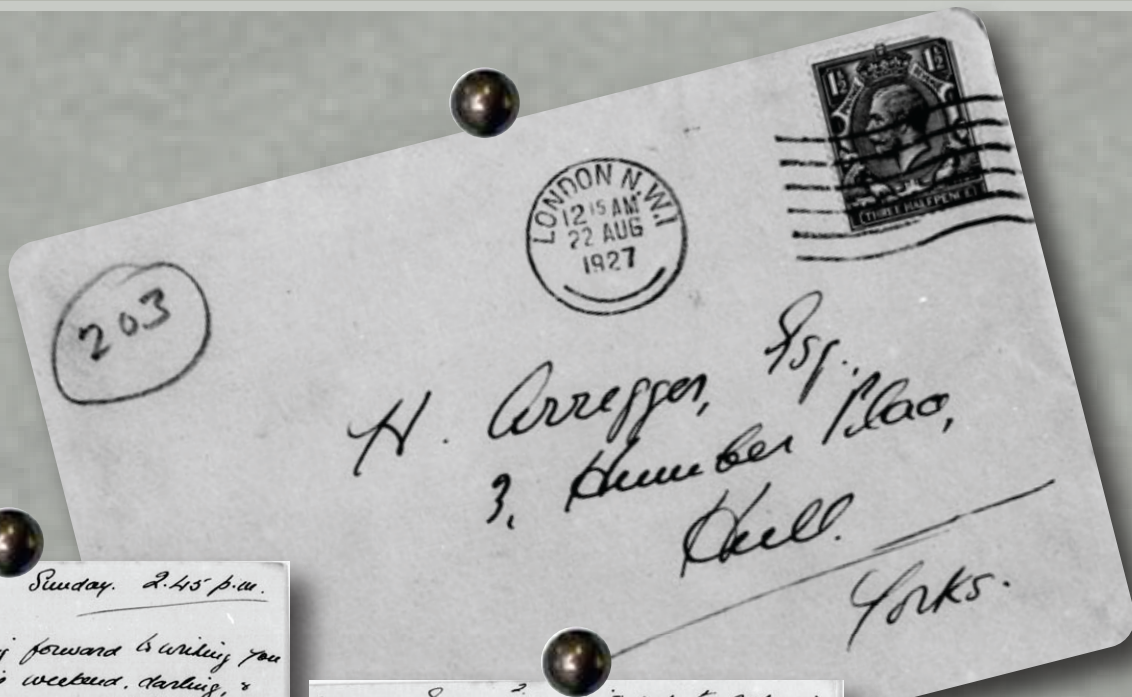 1½ 1½
POSTAGE REVENUE
THREE HALFPENCE
LONDON N.W.1
12 15 AM
22 AUG
1927
203
H. Arregger, Esq.
3, Humber Place,
Hull.
Yorks.
Sunday. 2.45 p.m.
forward to writing you
weekend, darling, &
2.